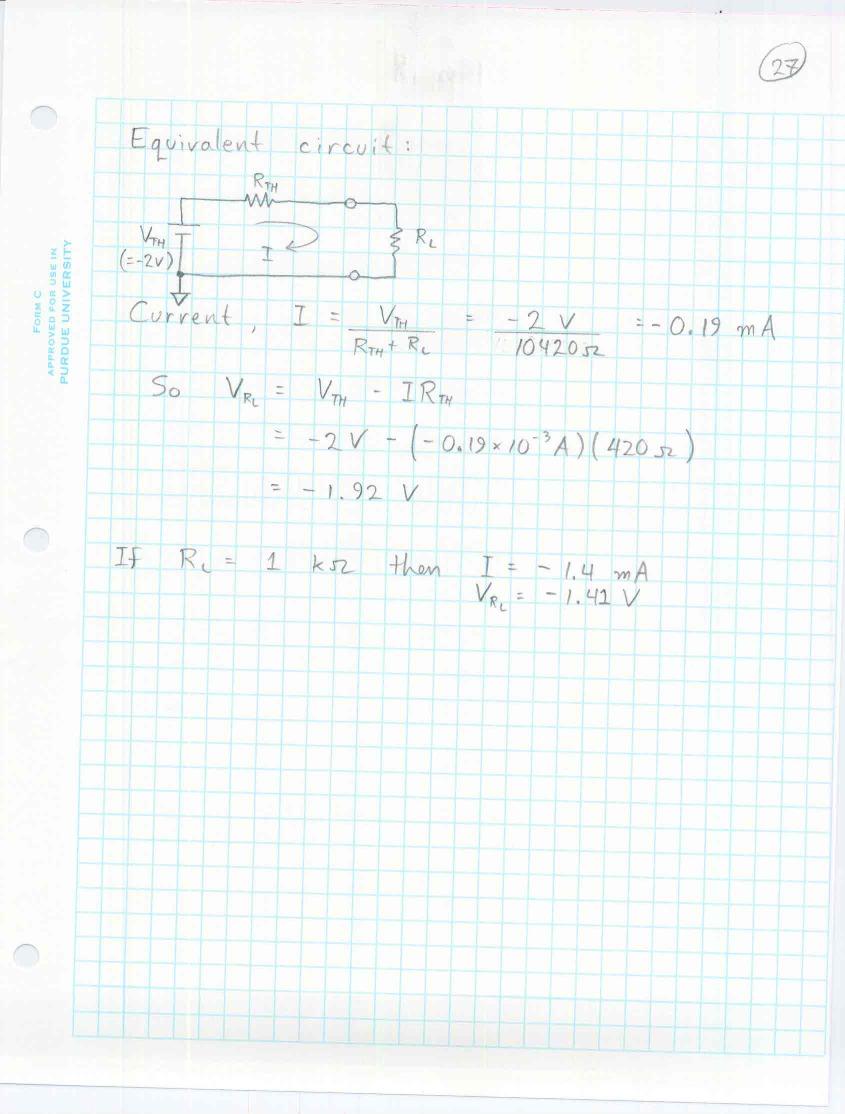 27
FORM C
APPROVED FOR USE IN
PURDUE UNIVERSITY
Equivalent circuit:
R_TH
V_TH
(=-2V)
I
R_L
Current, I = V_TH / (R_TH + R_L) = -2 V / 10420 Ω = -0.19 mA
So V_RL = V_TH - I R_TH
= -2 V - (-0.19 × 10^-3 A)(420 Ω)
= -1.92 V
If R_L = 1 kΩ then I = -1.4 mA
V_RL = -1.41 V